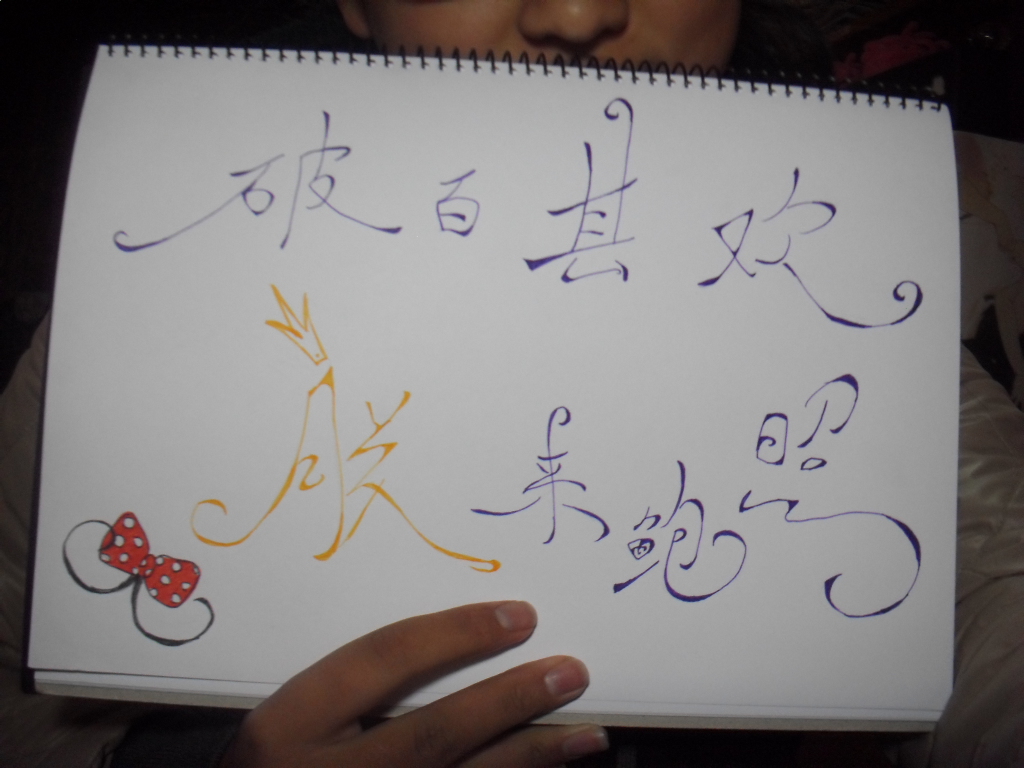 破百甚欢
朕来鲍照